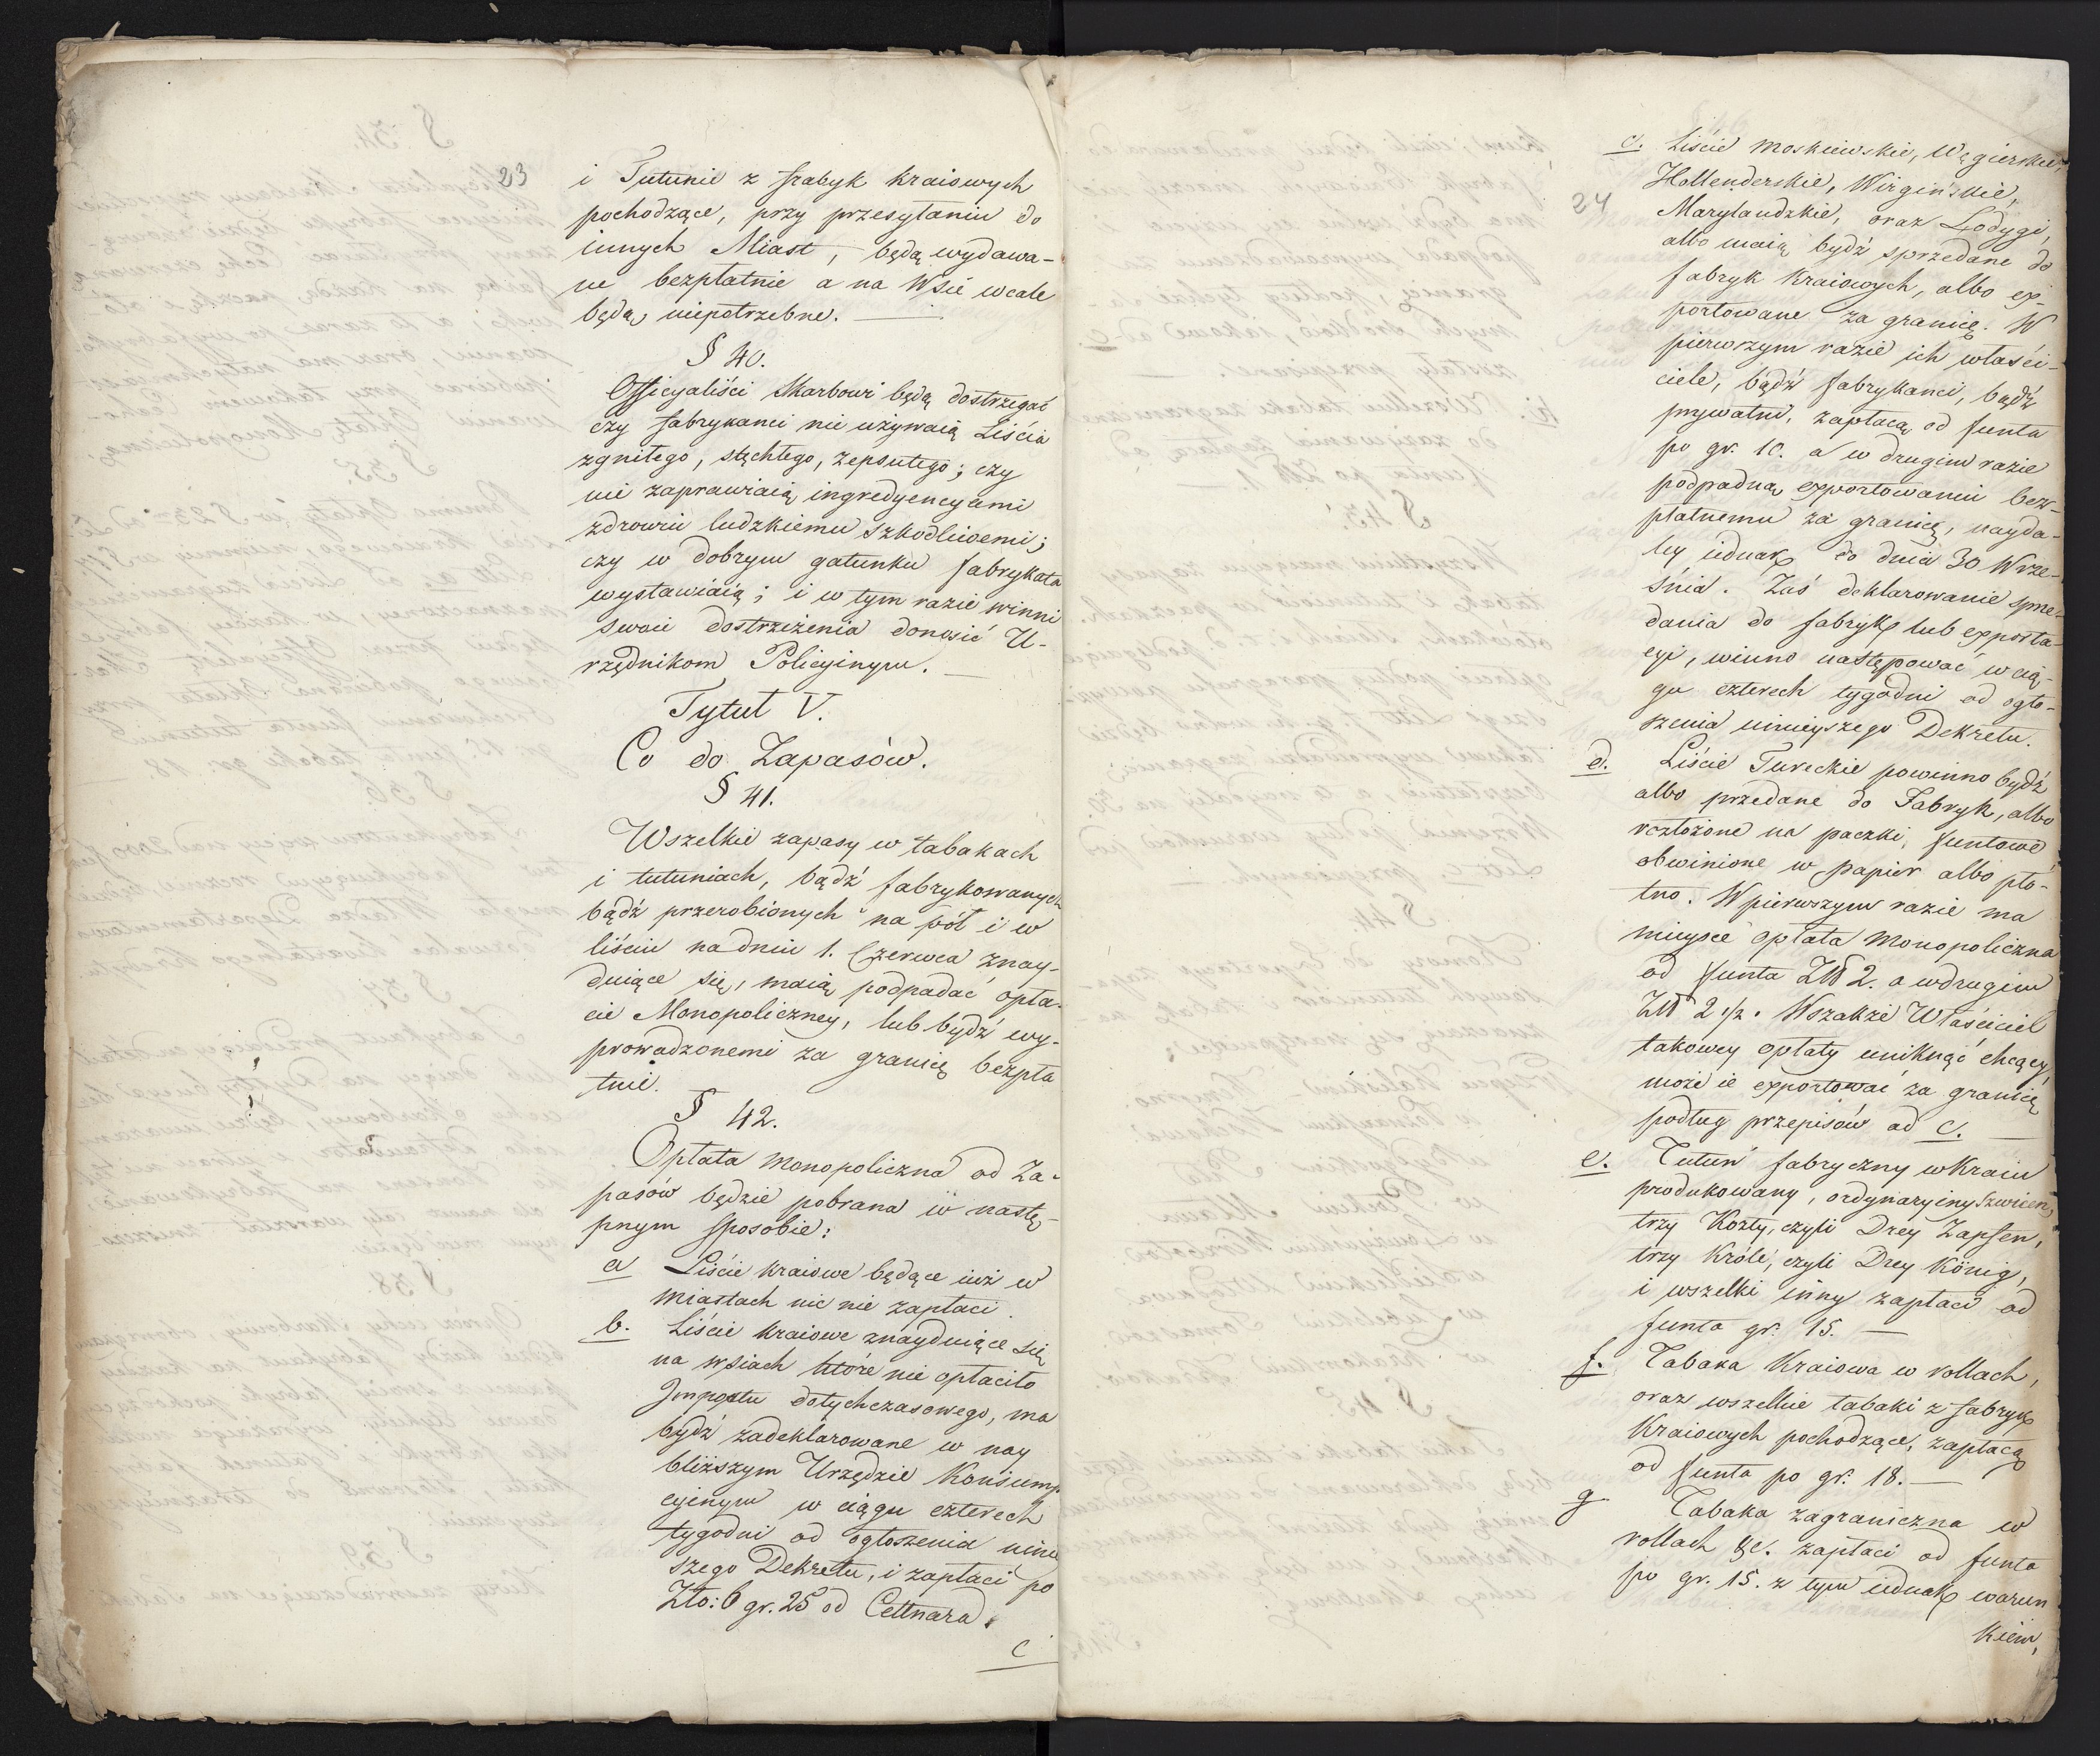 23
i Tutunie z frabyk kraiowych
pochodzące, przy przesyłaniu do
innych Miast, będą wydawa-
ne bezpłatnie a na Wsie wcale
będą niepotrzebne. —
§ 40.
Officyaliści Skarbowi będą dostrzegać
czy fabrykanci nie używaią Liścia
zgniłego, stęchłego, zepsutego; czy
nie zaprawiaią ingredyencyami
zdrowiu ludzkiemu szkodliwemi;
czy w dobrym gatunku fabrykata
wystawiaią; i w tym razie winni
swoie dostrzeżenia donosić U-
rzędnikom Policyinym. —
Tytuł V.
Co do Zapasów.
§ 41.
Wszelkie zapasy w tabakach
i tutuniach, bądź fabrykowanych
bądź przerobionych na pół i w
liściu na dniu 1. Czerwca znay-
duiące się, maią podpadać opła-
cie Monopoliczney, lub bydź wy-
prowadzonemi za granicę bezpła
tnie.
§ 42.
Opłata monopoliczna od Za-
pasów będzie pobrana w nastę-
pnym sposobie:
a Liście kraiowe będące iuż w
miastach nic nie zapłaci.
b. Liście kraiowe znayduiące się
na wsiach które nie opłaciło
Impostu dotychczasowego, ma
bydź zadeklarowane w nay
bliższym Urzędzie Konsump
cyinym w ciągu czterech
tygodni od ogłoszenia niniey
szego Dekretu, i zapłaci po
Zło: 6 gr. 25 od Cettnara.
c
24
c. Liście moskiewskie, Węgierskie,
Hollenderskie, Wirgińskie,
Marylandzkie, oraz Łodygi,
albo maią bydź sprzedane do
fabryk Kraiowych, albo ex-
portowane za granicę. W
pierwszym razie ich właści-
ciele, bądź fabrykanci, bądź
prywatni, zapłacą od funta
po gr. 10. a w drugim razie
podpadną exportowaniu bez-
płatnemu za granicę, nayda-
ley iednak do dnia 30 Wrze-
śnia. Zaś deklarowanie sprze-
dania do fabryk lub exporta-
cyi, winno następować w cią-
gu czterech tygodni od ogło-
szenia ninieyszego Dekretu.
d. Liście Tureckie powinno bydź
albo przedane do Fabryk, albo
rozłożone na paczki funtowe
obwinione w papier albo płó-
tno. W pierwszym razie ma
mieysce opłata monopoliczna
od funta Złł 2. a w drugim
Złł 2 1/2. Wszakże Właściciel
takowey opłaty uniknąć chcący,
może ie exportować za granicę
podług przepisów ad c. —
e. Tutuń fabryczny w Kraiu
produkowany, ordynaryiny Szwicen,
trzy Kozły, czyli Drey Zapfen,
trzy Króle, czyli Drey König,
i wszelki inny zapłaci od
funta gr. 15. —
f. Tabaka Kraiowa w rollach,
oraz wszelkie tabaki z fabryk
Kraiowych pochodzące, zapłacą
od funta po gr. 18. —
g Tabaka zagraniczna w
rollach &c. zapłaci od funta
po gr. 15. z tym iednak warun
kiem,